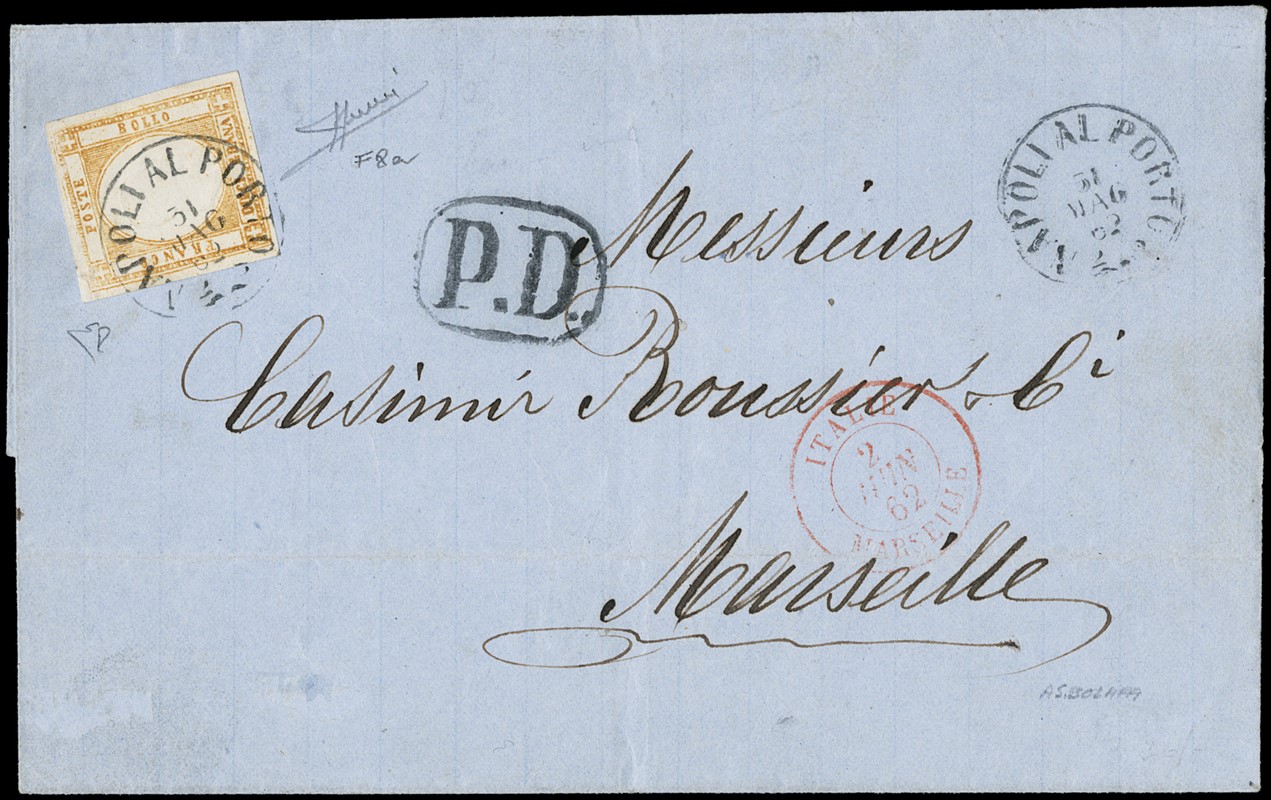 BOLLO
POSTE
FRANCO
NAPOLI AL PORTO
31
MAG
62
F8a
P.D.
NAPOLI AL PORTO
31
MAG
62
Messieurs
Casimir Roussier & Ci
ITALIE
2
JUIN
62
MARSEILLE
Marseille
A S. BOLAFFI